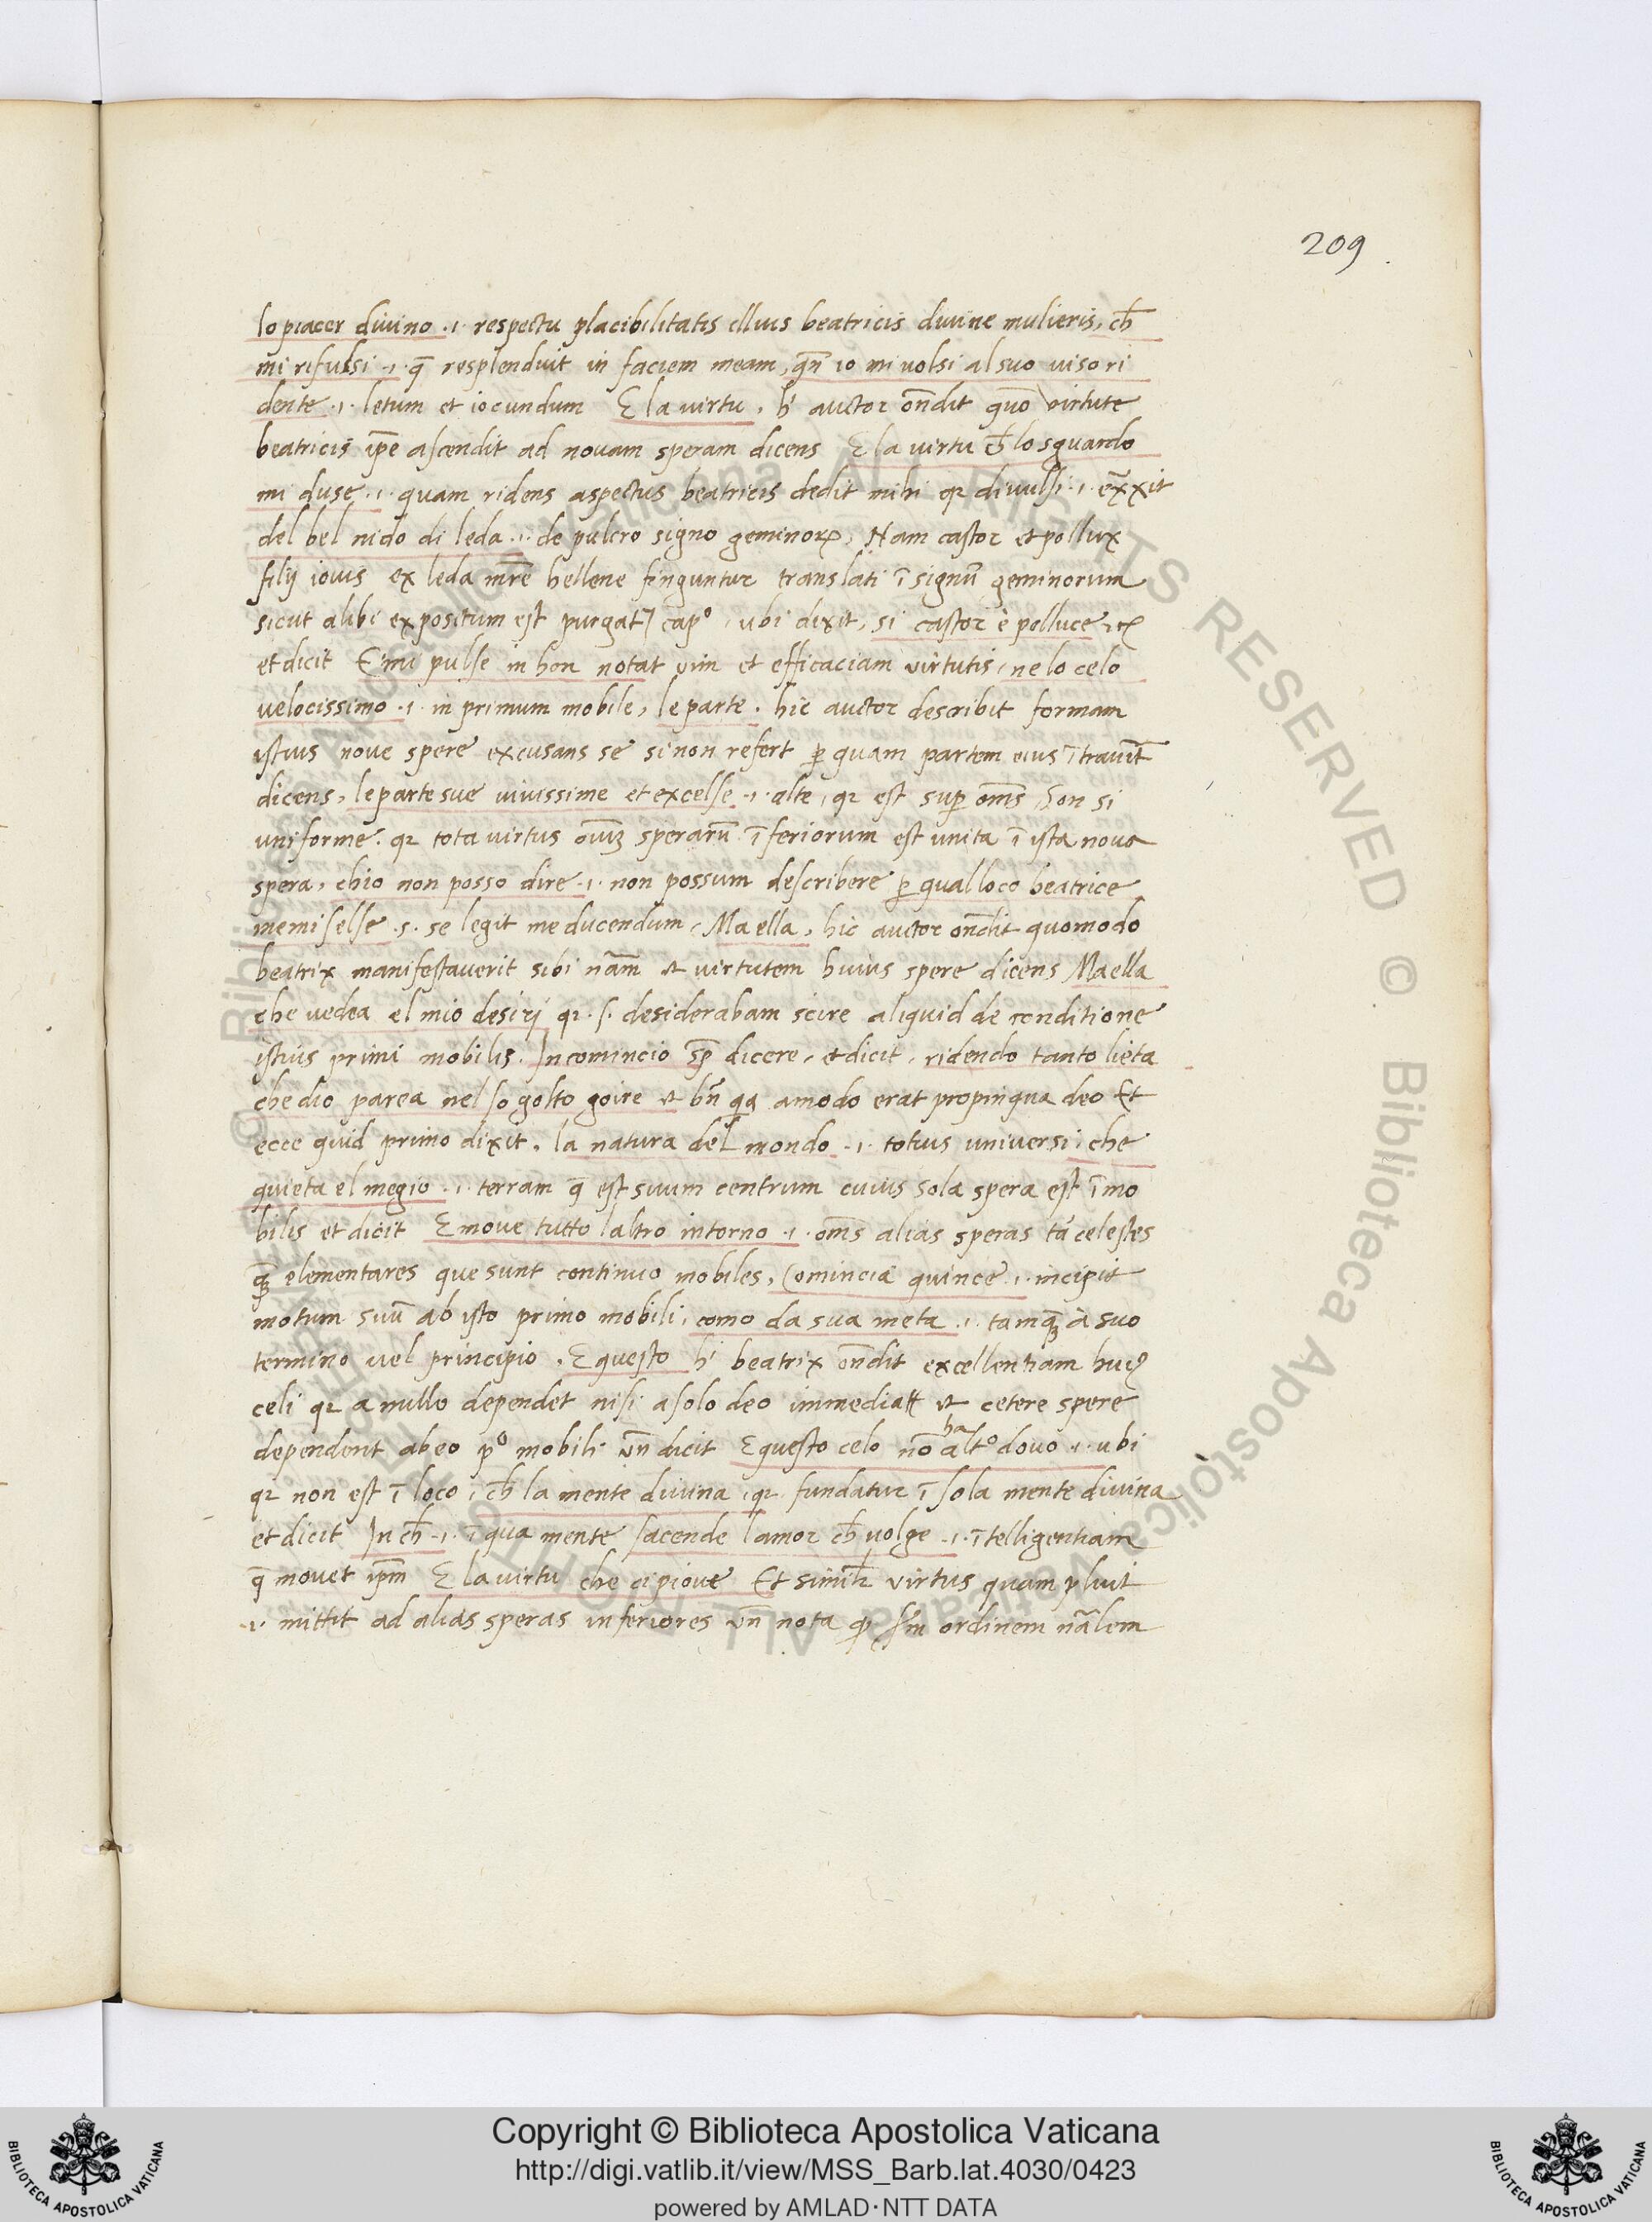 209
lo piacer divino .i. respectu placibilitatis illius beatricis divine mulieris, ch̄
mi rifulsi .i. q̄ resplenduit in faciem meam, qn̄ io mi volsi al suo viso ri
dente .i. letum et iocundum E la virtu. h' auctor on̄dit quō virtute
beatricis ip̄e ascendit ad novam speram dicens E la virtu ch̄ lo sguardo
mi duse .i. quam ridens aspectus beatricis dedit mihi qꝛ divulsi .i. ex̄xit
del bel nido di leda .i. de pulcro signo geminoꝝ, Nam castor et pollux
filij iovis ex leda mr̄e hellene finguntur translati ī signū geminorum
sicut alibi expositum est purgat] cap°, ubi dixit, si castor è polluce ⁊c
et dicit E'mi pulse in hon notat vim et efficaciam virtutis, ne lo celo
velocissimo .i. in primum mobile, le parte. hic auctor describit formam
istius nove spere excusans se si non refert ꝑ quam partem eius ītravit̄
dicens, le parte sue vivissime et excelse .i. alte, qꝛ est suꝑ om̄s, Son si
uniforme. qꝛ tota virtus oiūꝫ sperarū īferiorum est unita ī ista nova
spera, chio non posso dire .i. non possum describere ꝑ qual loco beatrice
me mi selse .s. se legit me ducendum, Ma ella, hic auctor on̄dit quomodo
beatrix manifestaverit sibi nām et virtutem huius spere dicens Ma ella
che vedea el mio desirj qꝛ .s. desiderabam scire aliquid de conditione
istius primi mobilis. Incomincio sp̄ dicere, et dicit, ridendo tanto lieta
che dio parea nel so golto goire et bn̄ qa amodo erat propinqua deo Et
ecce quid primo dixit. la natura del mondo .i. totius universi, che
quieta el megio .i. terram q̄ est suum centrum cuius sola spera est īmo
bilis et dicit E move tutto laltro intorno .i. om̄s alias speras tā celestes
qꝫ̄ elementares que sunt continuo mobiles, Comincia quince .i. incipit
motum suū ab isto primo mobili, como da sua meta .i. tamqꝫ̄ à suo
termino vel principio. E questo h' beatrix on̄dit excellentiam huiꝰ
celi qꝛ a nullo dependet nisi a solo deo immediatt et cetere spere
dependent ab eo p° mobili. vn̄ dicit E questo celo nō ha alt° dovo .i. ubi
qꝛ non est ī loco, ch̄ la mente divina, qꝛ fundatur ī sola mente divina
et dicit In ch̄ .i. ī qua mente, sacende lamor ch̄ volge .i. ītelligentiam
q̄ movet ip̄m E la virtu che ei piove Et simil̄r virtus quam pluit
.i. mittit ad alias speras inferiores vn̄ nota qꝫ sm̄ ordinem nālem
© Biblioteca Apostolica Vaticana ALL RIGHTS RESERVED © Biblioteca Apostolica Vaticana ALL RIGHTS RESERVED
BIBLIOTECA APOSTOLICA VATICANA
Copyright © Biblioteca Apostolica Vaticana
http://digi.vatlib.it/view/MSS_Barb.lat.4030/0423
powered by AMLAD·NTT DATA
BIBLIOTECA APOSTOLICA VATICANA